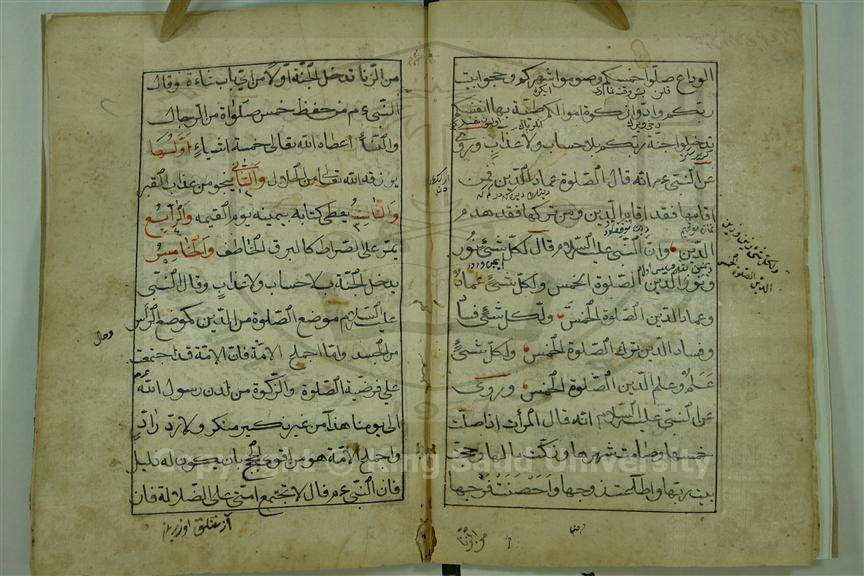 الوداع صلوا خمسكم وصوموا شهركم وحجوا بيت
ربكم وادوا زكوة اموالكم طيبة بها انفسكم
تدخلوا جنة ربكم بلا حساب ولا عذاب وروى
عن النبى عم انه قال الصلوة عماد الدين فمن
اقامها فقد اقام الدين ومن تركها فقد هدم
الدين وان النبى عليه السلام قال لكل شئ نور
ونور الدين الصلوة الخمس ولكل شئ عماد
وعماد الدين الصلوة الخمس ولكل شئ فساد
وفساد الدين ترك الصلوة الخمس ولكل شئ
علم وعلم الدين الصلوة الخمس وروى
عن النبى عليه السلام انه قال المرأت اذا صلت
خمسها وصامت شهرها وزكت مالها وحجت
بيت ربها واطاعت زوجها واحصنت فرجها
من الزنا
من الزنا تدخل الجنة اولا من اى باب شاءة وقال
النبى عم من حفظ خمس صلواة من الرجال
والنسأ اعطاه الله تعالى خمسة اشياء اولها
يرزقه الله تعالى من الحلال والثانى ينجو من عذاب القبر
والثالث يعطى كتابه بيمينه يوم القيمه والرابع
يمر على الصراط كالبرق الخاطف والخامس
يدخل الجنة بلا حساب ولا عذاب وقال النبى
عليه السلام موضع الصلوة من الدين كموضع الرأس
من الجسد واما اجماع الامة فان الامة قد اجتمعت
على فرضية الصلوة والزكوة من لدن رسول الله
الى يومنا هذا من غير نكير منكر ولا رد راد
واجماع الامة هو من اقوى الحجج بان يكون له دليل
فان النبى عم قال لا تجتمع امتى على الضلالة فان
Copyright © King Saud University